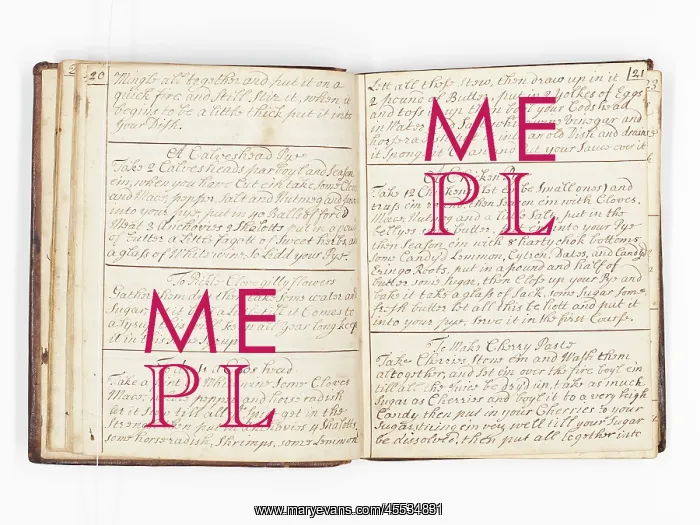 20
Mingle all together and put it on a
quick fire and still stir it, when it
begins to be a little thick put it into
your Dish.
A Calveshead Pye
Take 2 Calvesheads parboyl and season
em, when you have cut em take some Cloves
and Mace, pepper, Salt and Nutmeg and
into your pye, put in 40 Balls of forc'd
Meat 3 Anchovies 2 Shalotts put in a
of Butter a little fagott of sweet herbs, an
a glass of White wine so lidd your Pye.
To Pickle Clovegillyflowers
Gather em dry then take some water and
Sugar it comes to
a Syrup all year long keep
it in
head
Take a White wine some Cloves
Mace, pepper and horse radish
let it stew till all get in the
then put in Anchovies 4 Shalotts,
some horse radish, Shrimps, some Lemmon
21
Lett all these stew, then draw up in it
2 pound of Butter, put in 2 yolkes of Eggs
and toss up your Codshead
in Water and Vinegar and
horse radish an old Dish and draine
it put your Sauce over it
A Chicken Pye
Take 12 Chickens (let em be small ones) and
truss em season em with Cloves,
Mace, Nutmeg and a little Salt, put in the
Bellyes butter into your Pye
then season em with 8 hartychok bottoms
some Candy'd Lemmon, Cytron, Dates, and Candy'd
Eringo Roots, put in a pound and half of
butter some Sugar, then close up your Py and
bake it take a glass of Sack, some Sugar some
fresh butter let all this be hott and put it
into your pye, serve it in the first Course.
To Make Cherry Paste
Take Cherries Stone em and Wash them
altogether, and set em over the fire boyl em
till all the Juice be dryd in, take as much
Sugar as Cherries and boyl it to a very high
Candy then put in your Cherries to your
Sugar, string em very well till your Sugar
be dissolved, then put all together into
ME
PL
ME
PL
www.maryevans.com/45534831